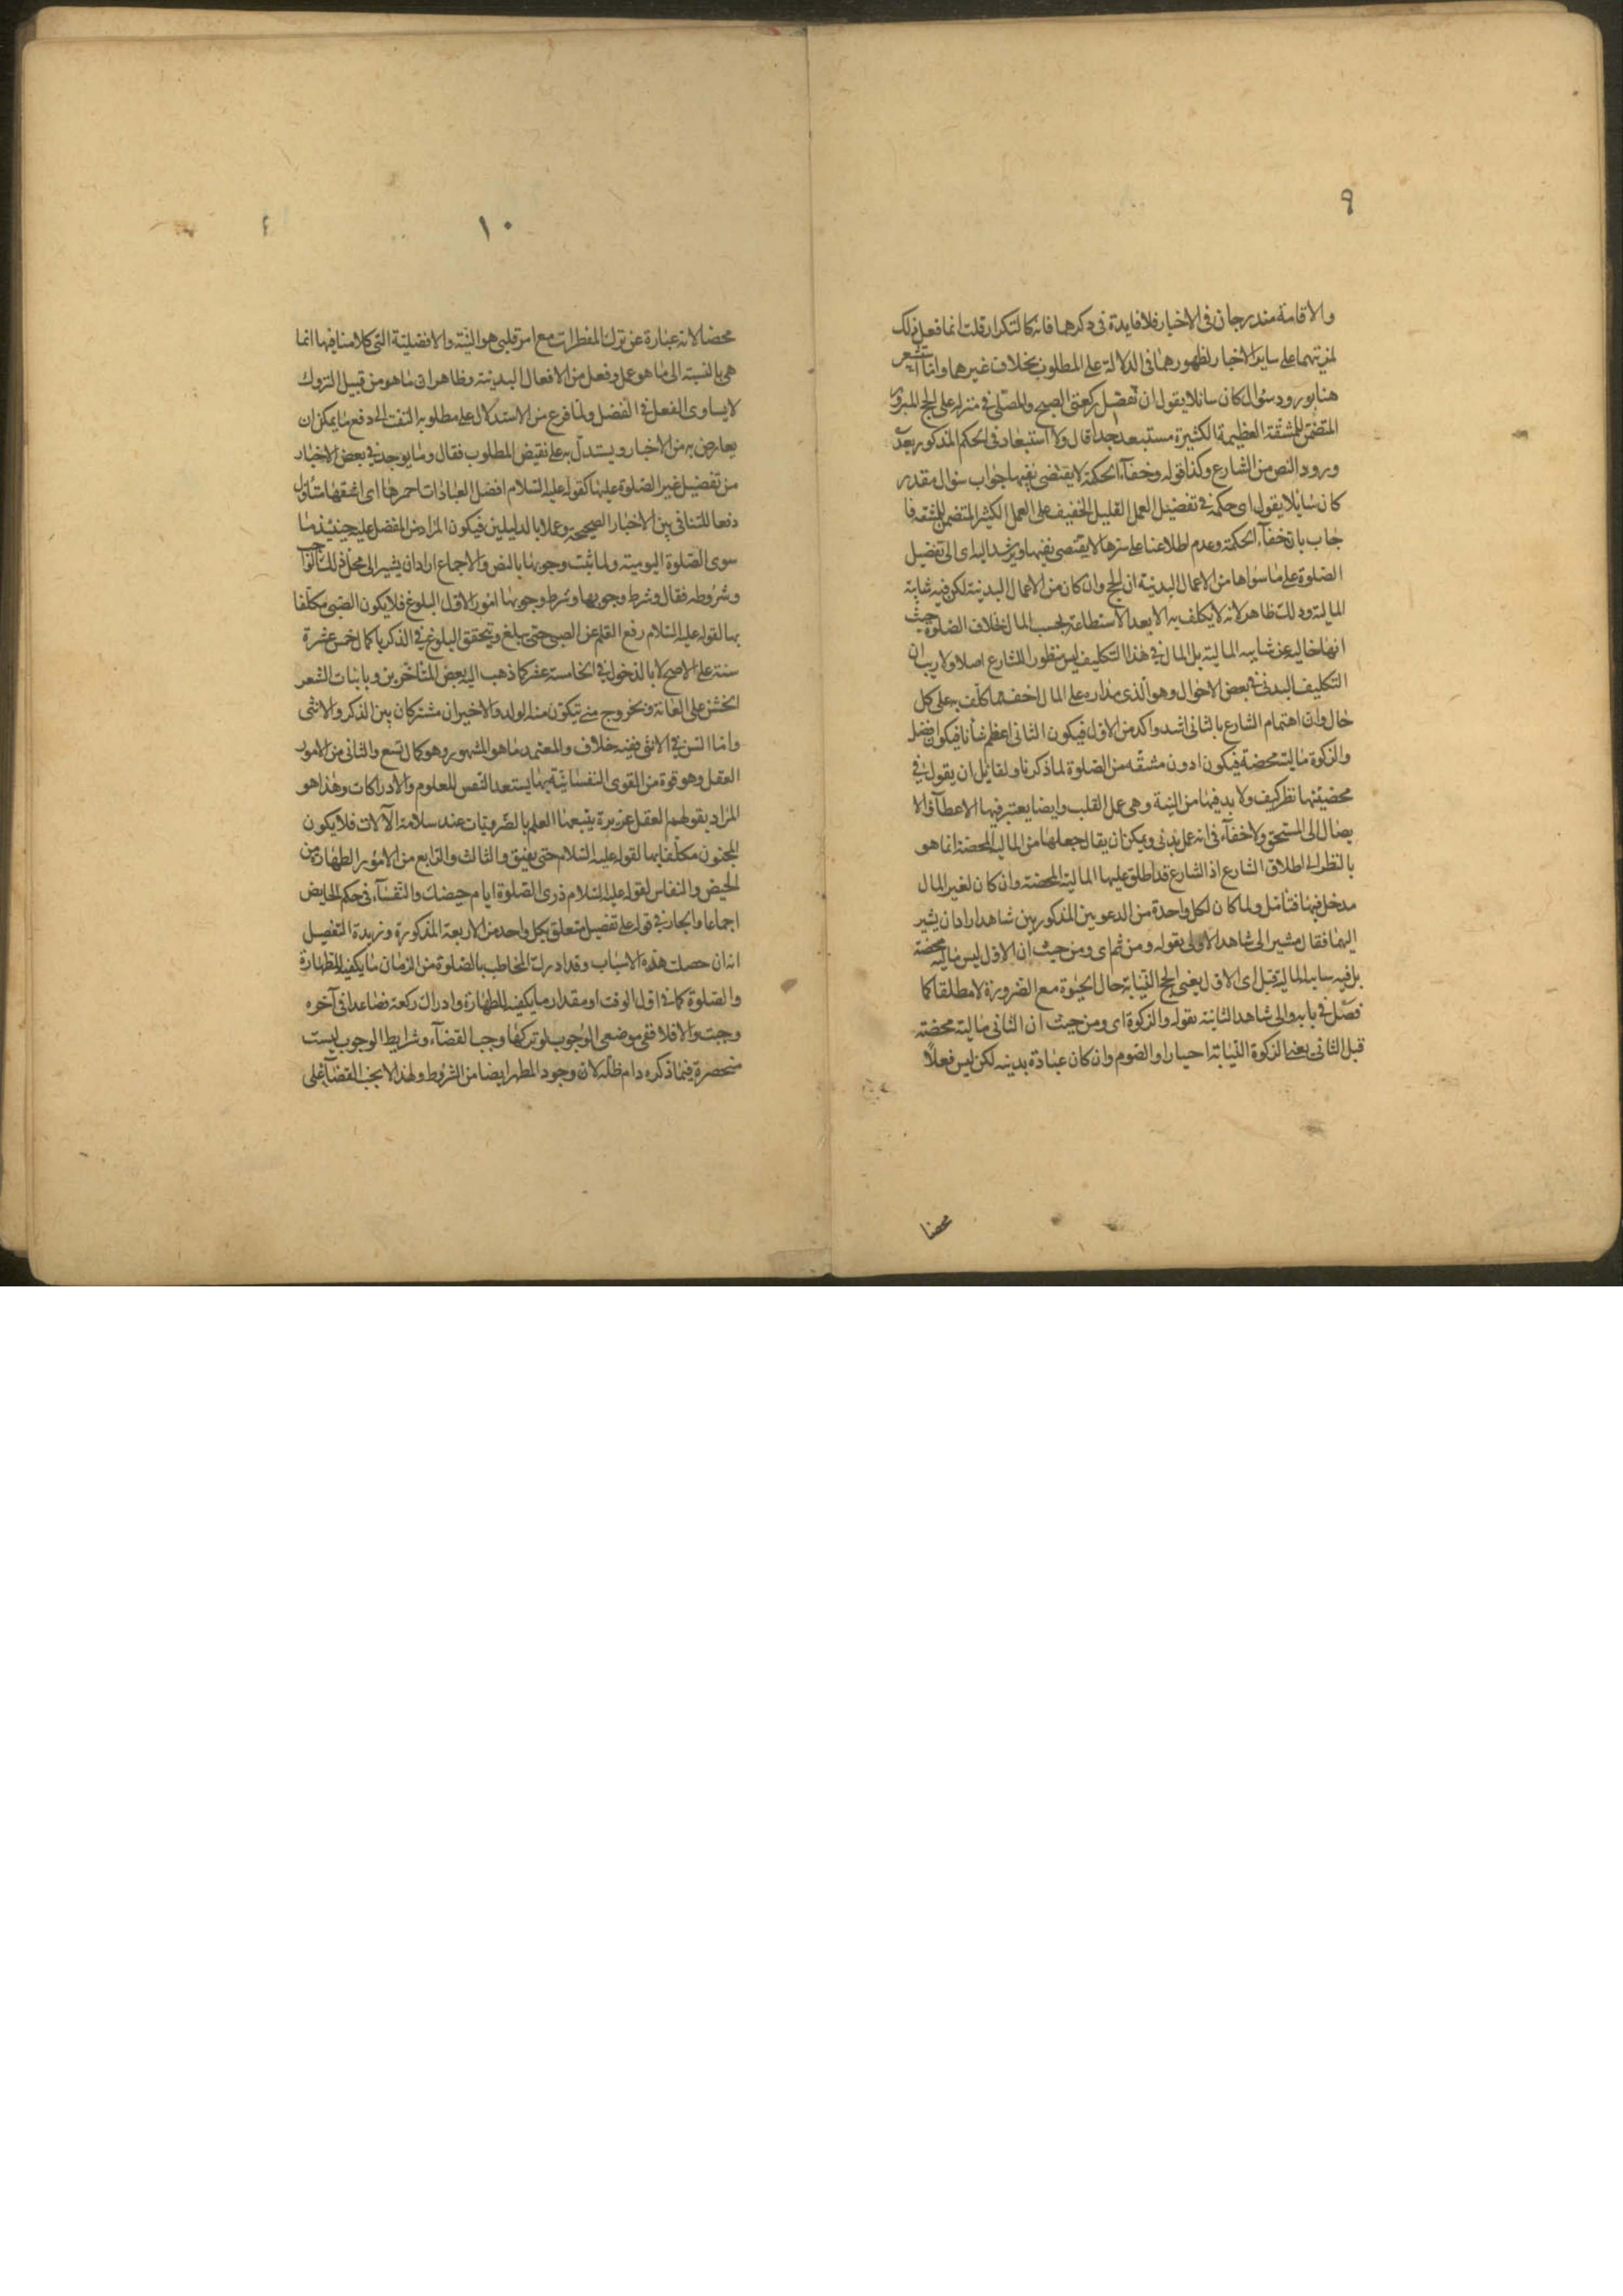 ٩
والاقامة مندرجان فى الاخبار فلا فايدة فى ذكرهما فانه كالتكرار قلت انما فعل ذلك
لمزيتهما على ساير الاخبار لظهورهما فى الدلالة على المطلوب بخلاف غيرهما ولما استشعر
هنا بورود سؤال كان سائلا يقول ان تفضيل ركعتى الصبح والمصلى فى منزله على الحج المبرور
المتضمن للمشقة العظيمة الكثيرة مستبعد جدا قال ولا استبعاد فى الحكم المذكور بعد
ورود النص من الشارع وكذا قوله وخفآء الحكمة لا يقتضى نفيها جواب سؤال مقدر
كان سائلا يقول اى حكمة فى تفضيل العمل القليل الخفيف على العمل الكثير المتضمن للمشقة فا
جاب بان خفآء الحكمة وعدم اطلاعنا على سرها لا يقتضى نفيها ويرشد اليه اى الى تفضيل
الصلوة على ما سواها من الاعمال البدنية ان الحج وان كان من الاعمال البدنية لكن فيه شايبة
المالية وذلك ظاهر لانه لا يكلف به الا بعد الاستطاعة بحسب المال بخلاف الصلوة حيث
انها خالية عن شايبه المالية بل المال فى هذا التكليف ليس منظور الشارع اصلا ولا ريب ان
التكليف البدنى فى بعض الاحوال وهو الذى مداره على المال اخف مما كلف به على كل
حال وان اهتمام الشارع بالثانى اشد واكد من الاول فيكون الثانى اعظم شانا فيكون افضل
والزكوة مالية محضة فيكون ادون مشقة من الصلوة لما ذكرنا ولقايل ان يقول فى
محضيتها نظر كيف ولا بد فيها من النية وهى عمل القلب وايضا يعتبر فيها الاعطآء والا
يصال الى المستحق ولا خفآء فى انه عمل بدنى ويمكن ان يقال جعلها من المالية المحضة انما هو
بالنظر الى اطلاق الشارع اذ الشارع قد اطلق عليها المالية المحضة وان كان لغير المال
مدخل فيها فتأمل ولما كان لكل واحدة من الدعويين المذكورين شاهدا اراد ان يشير
اليهما فقال مشيرا الى شاهد الاولى بقوله ومن ثم اى ومن حيث ان الاول ليس مالية محضة
بل فيه شايبه المالية قبل اى الاول يعنى الحج النيابة حال الحيوة مع الضرورة لا مطلقا كما
فصل فى بابه والى شاهد الثانية بقوله والزكوة اى ومن حيث ان الثانى مالية محضة
قبل الثانى يعنى الزكوة النيابة اختيارا والصوم وان كان عبادة بدنيه لكن ليس فعلًا
محضا
١٠
محضا لانه عبارة عن ترك المفطرات مع امر قلبى هو النية والافضلية التى كلامنا فيها انما
هى بالنسبة الى ما هو عمل وفعل من الافعال البدنية وظاهر ان ما هو من قبيل التروك
لا يساوى الفعل فى الفضل ولما فرغ من الاستدلال على مطلوبه التفت الى دفع ما يمكن ان
يعارض به من الاخبار ويستدل به على نقيض المطلوب فقال وما يوجد فى بعض الاخبار
من تفضيل غير الصلوة عليها كقوله عليه السلام افضل العبادات احمزها اى اشقها متاول
دفعا للتنافى بين الاخبار الصحيحة وعملا بالدليلين فيكون المراد من المفضل عليه حينئذ ما
سوى الصلوة اليومية ولما ثبت وجوبها بالنص والاجماع اراد ان يشير الى محل ذلك الواجب
وشروطه فقال وشرط وجوبها وشرط وجوبها امور الاول البلوغ فلا يكون الصبى مكلفا
بها لقوله عليه السلام رفع القلم عن الصبى حتى يبلغ ويتحقق البلوغ فى الذكر باكمال خمس عشرة
سنة على الاصح لا بالدخول فى الخامسة عشر كما ذهب اليه بعض المتاخرين وبانبات الشعر
الخشن على العانة وبخروج منى يتكون منه الولد والاخيران مشتركان بين الذكر والانثى
واما السن فى الانثى ففيه خلاف والمعتمد ما هو المشهور وهو كمال تسع والثانى من الامور
العقل وهو قوة من القوى النفسانية بها يستعد النفس للعلوم والادراكات وهذا هو
المراد بقولهم العقل غريزة يتبعها العلم بالضروريات عند سلامة الآلات فلا يكون
المجنون مكلفا بها لقوله عليه السلام حتى يفيق والثالث والرابع من الامور الطهارة من
الحيض والنفاس لقوله عليه السلام ذرى الصلوة ايام حيضك والنفسآء فى حكم الحايض
اجماعا والجار فى قوله على تفصيل متعلق بكل واحد من الاربعة المذكورة وزبدة التفصيل
انه ان حصلت هذه الاسباب وقد ادرك المخاطب بالصلوة من الزمان ما يكفيه للطهارة
والصلوة كما فى اول الوقت او مقدار ما يكفيه للطهارة وادراك ركعة فصاعدا فى آخره
وجبت والا فلا ففى موضعى الوجوب لو تركها وجب القضآء وشرايط الوجوب ليست
منحصرة فيما ذكره دام ظله لان وجود المطهر ايضا من الشروط ولهذا لا يجب القضآء على